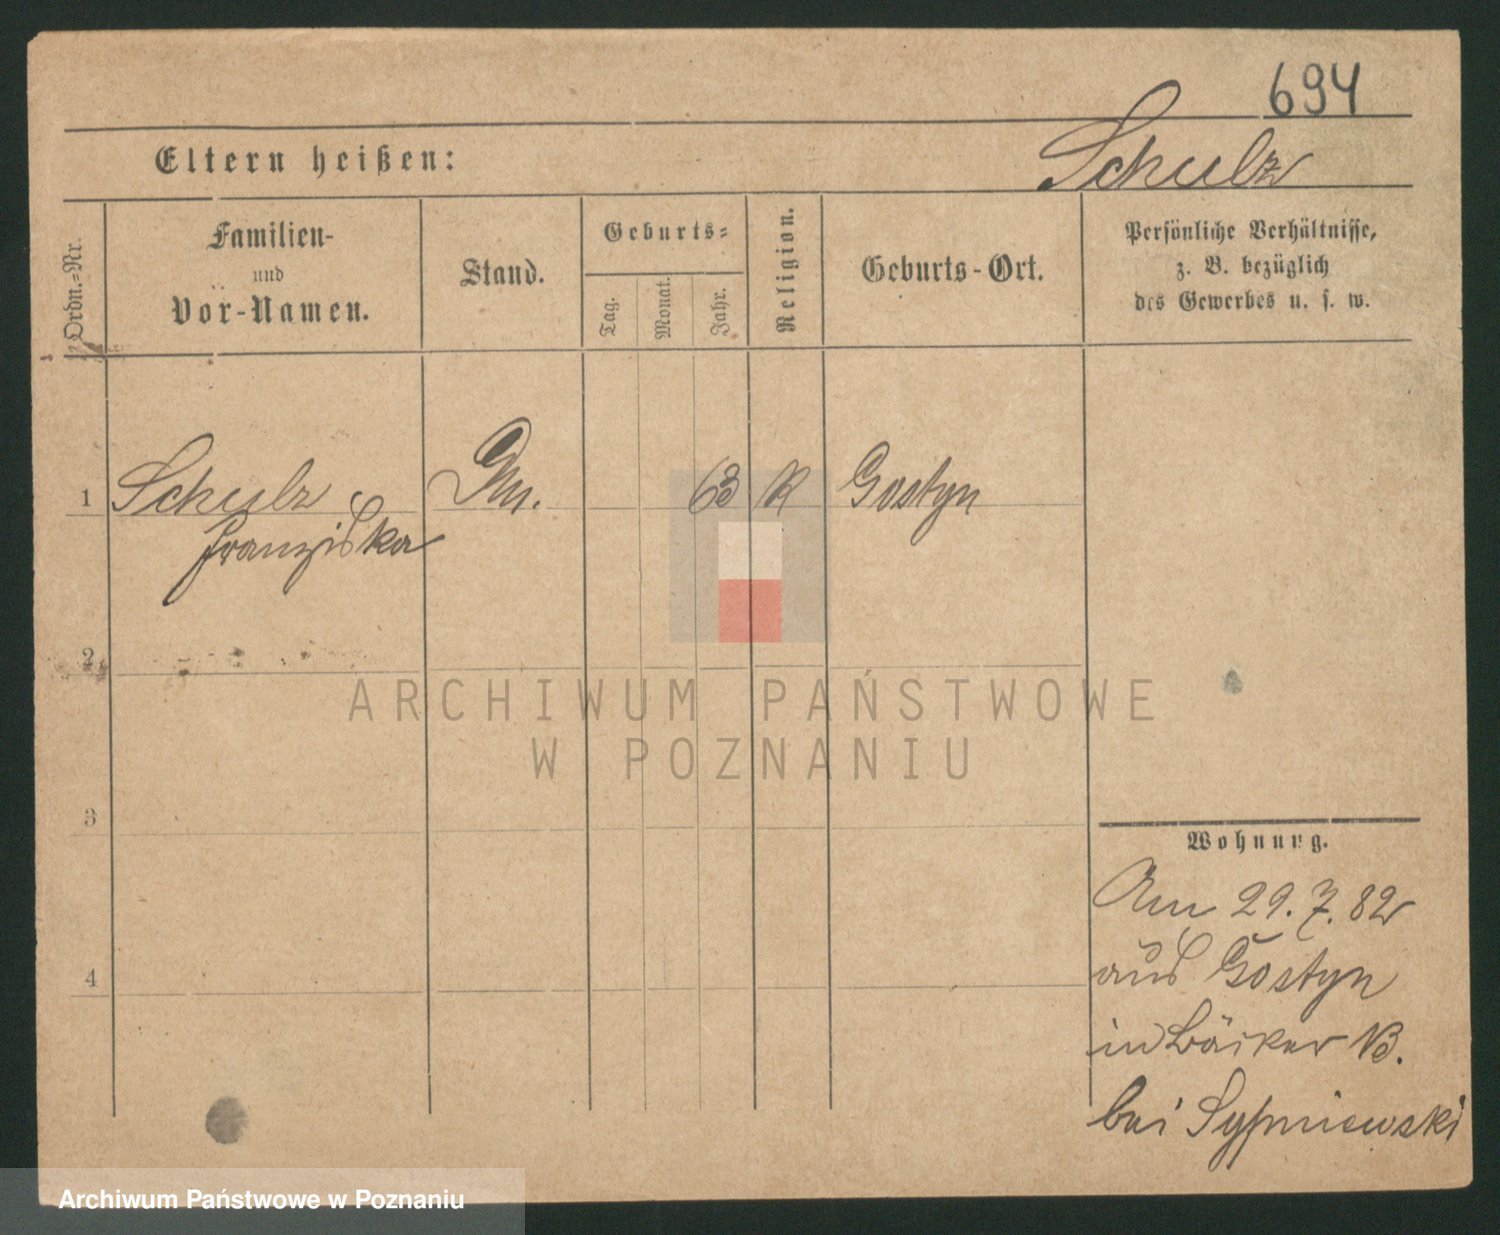 694
Eltern heißen:
Schulz
Ordn.-Nr.
Familien-
und
Vor-Namen.
Stand.
Geburts-
Tag.
Monat.
Jahr.
Religion.
Geburts-Ort.
Persönliche Verhältnisse,
z. B. bezüglich
des Gewerbes u. s. w.
1 Schulz 63 K Gostyn
Franziska
2
3
4
Wohnung.
Am 29. 7. 82
aus Gostyn
in Bäcker
bei Sypniewski
ARCHIWUM PAŃSTWOWE
W POZNANIU
Archiwum Państwowe w Poznaniu